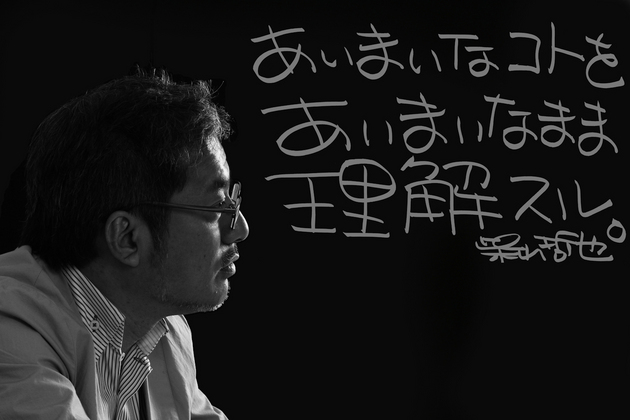 あいまいなコトを
あいまいなまま
理解スル。